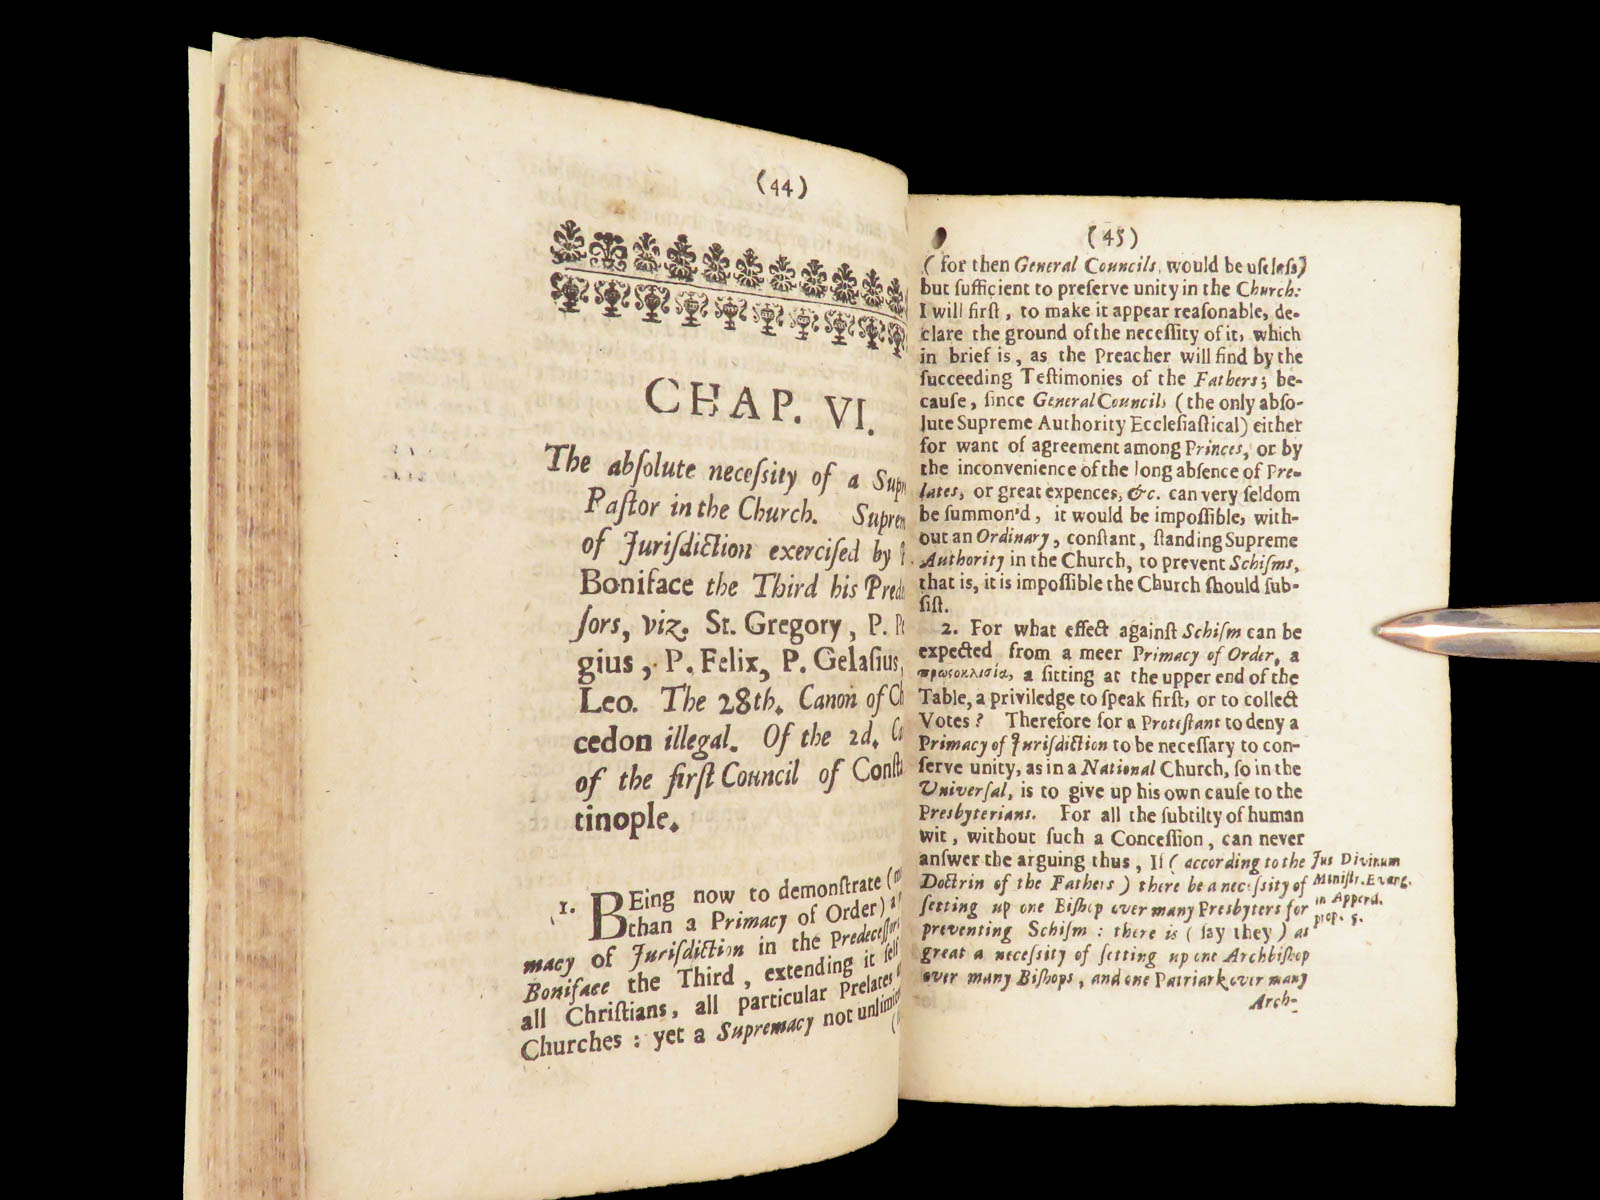 (44)
CHAP. VI.
The abſolute neceſsity of a
Paſtor in the Church.
of Juriſdiction exerciſed by
Boniface the Third his
ſors, viz. St. Gregory, P.
gius, P. Felix, P. Gelaſius,
Leo. The 28th. Canon of
cedon illegal. Of the 2d.
of the firſt Council of
tinople.
1. BEing now to demonſtrate
than a Primacy of Order)
macy of Juriſdiction in the
Boniface the Third, extending it
all Chriſtians, all particular Prelates
Churches: yet a Supremacy not
(45)
(for then General Councils would be uſeleſs)
but ſufficient to preſerve unity in the Church:
I will firſt, to make it appear reaſonable, de-
clare the ground of the neceſſity of it, which
in brief is, as the Preacher will find by the
ſucceeding Teſtimonies of the Fathers; be-
cauſe, ſince General Councils (the only abſo-
lute Supreme Authority Eccleſiaſtical) either
for want of agreement among Princes, or by
the inconvenience of the long abſence of Pre-
lates, or great expences, &c. can very ſeldom
be ſummon'd, it would be impoſſible, with-
out an Ordinary, conſtant, ſtanding Supreme
Authority in the Church, to prevent Schiſms,
that is, it is impoſſible the Church ſhould ſub-
ſiſt.
2. For what effect againſt Schiſm can be
expected from a meer Primacy of Order, a
a ſitting at the upper end of the
Table, a priviledge to ſpeak firſt, or to collect
Votes? Therefore for a Proteſtant to deny a
Primacy of Juriſdiction to be neceſſary to con-
ſerve unity, as in a National Church, ſo in the
Univerſal, is to give up his own cauſe to the
Presbyterians. For all the ſubtilty of human
wit, without ſuch a Conceſſion, can never
anſwer the arguing thus, If (according to the
Doctrin of the Fathers) there be a neceſsity of
ſetting up one Biſhop over many Presbyters for
preventing Schiſm: there is (ſay they) as
great a neceſsity of ſetting up one Archbiſhop
over many Biſhops, and one Patriark over many
Arch-
Jus Divinum
Miniſtr. Evang.
in Append.
prop. 5.